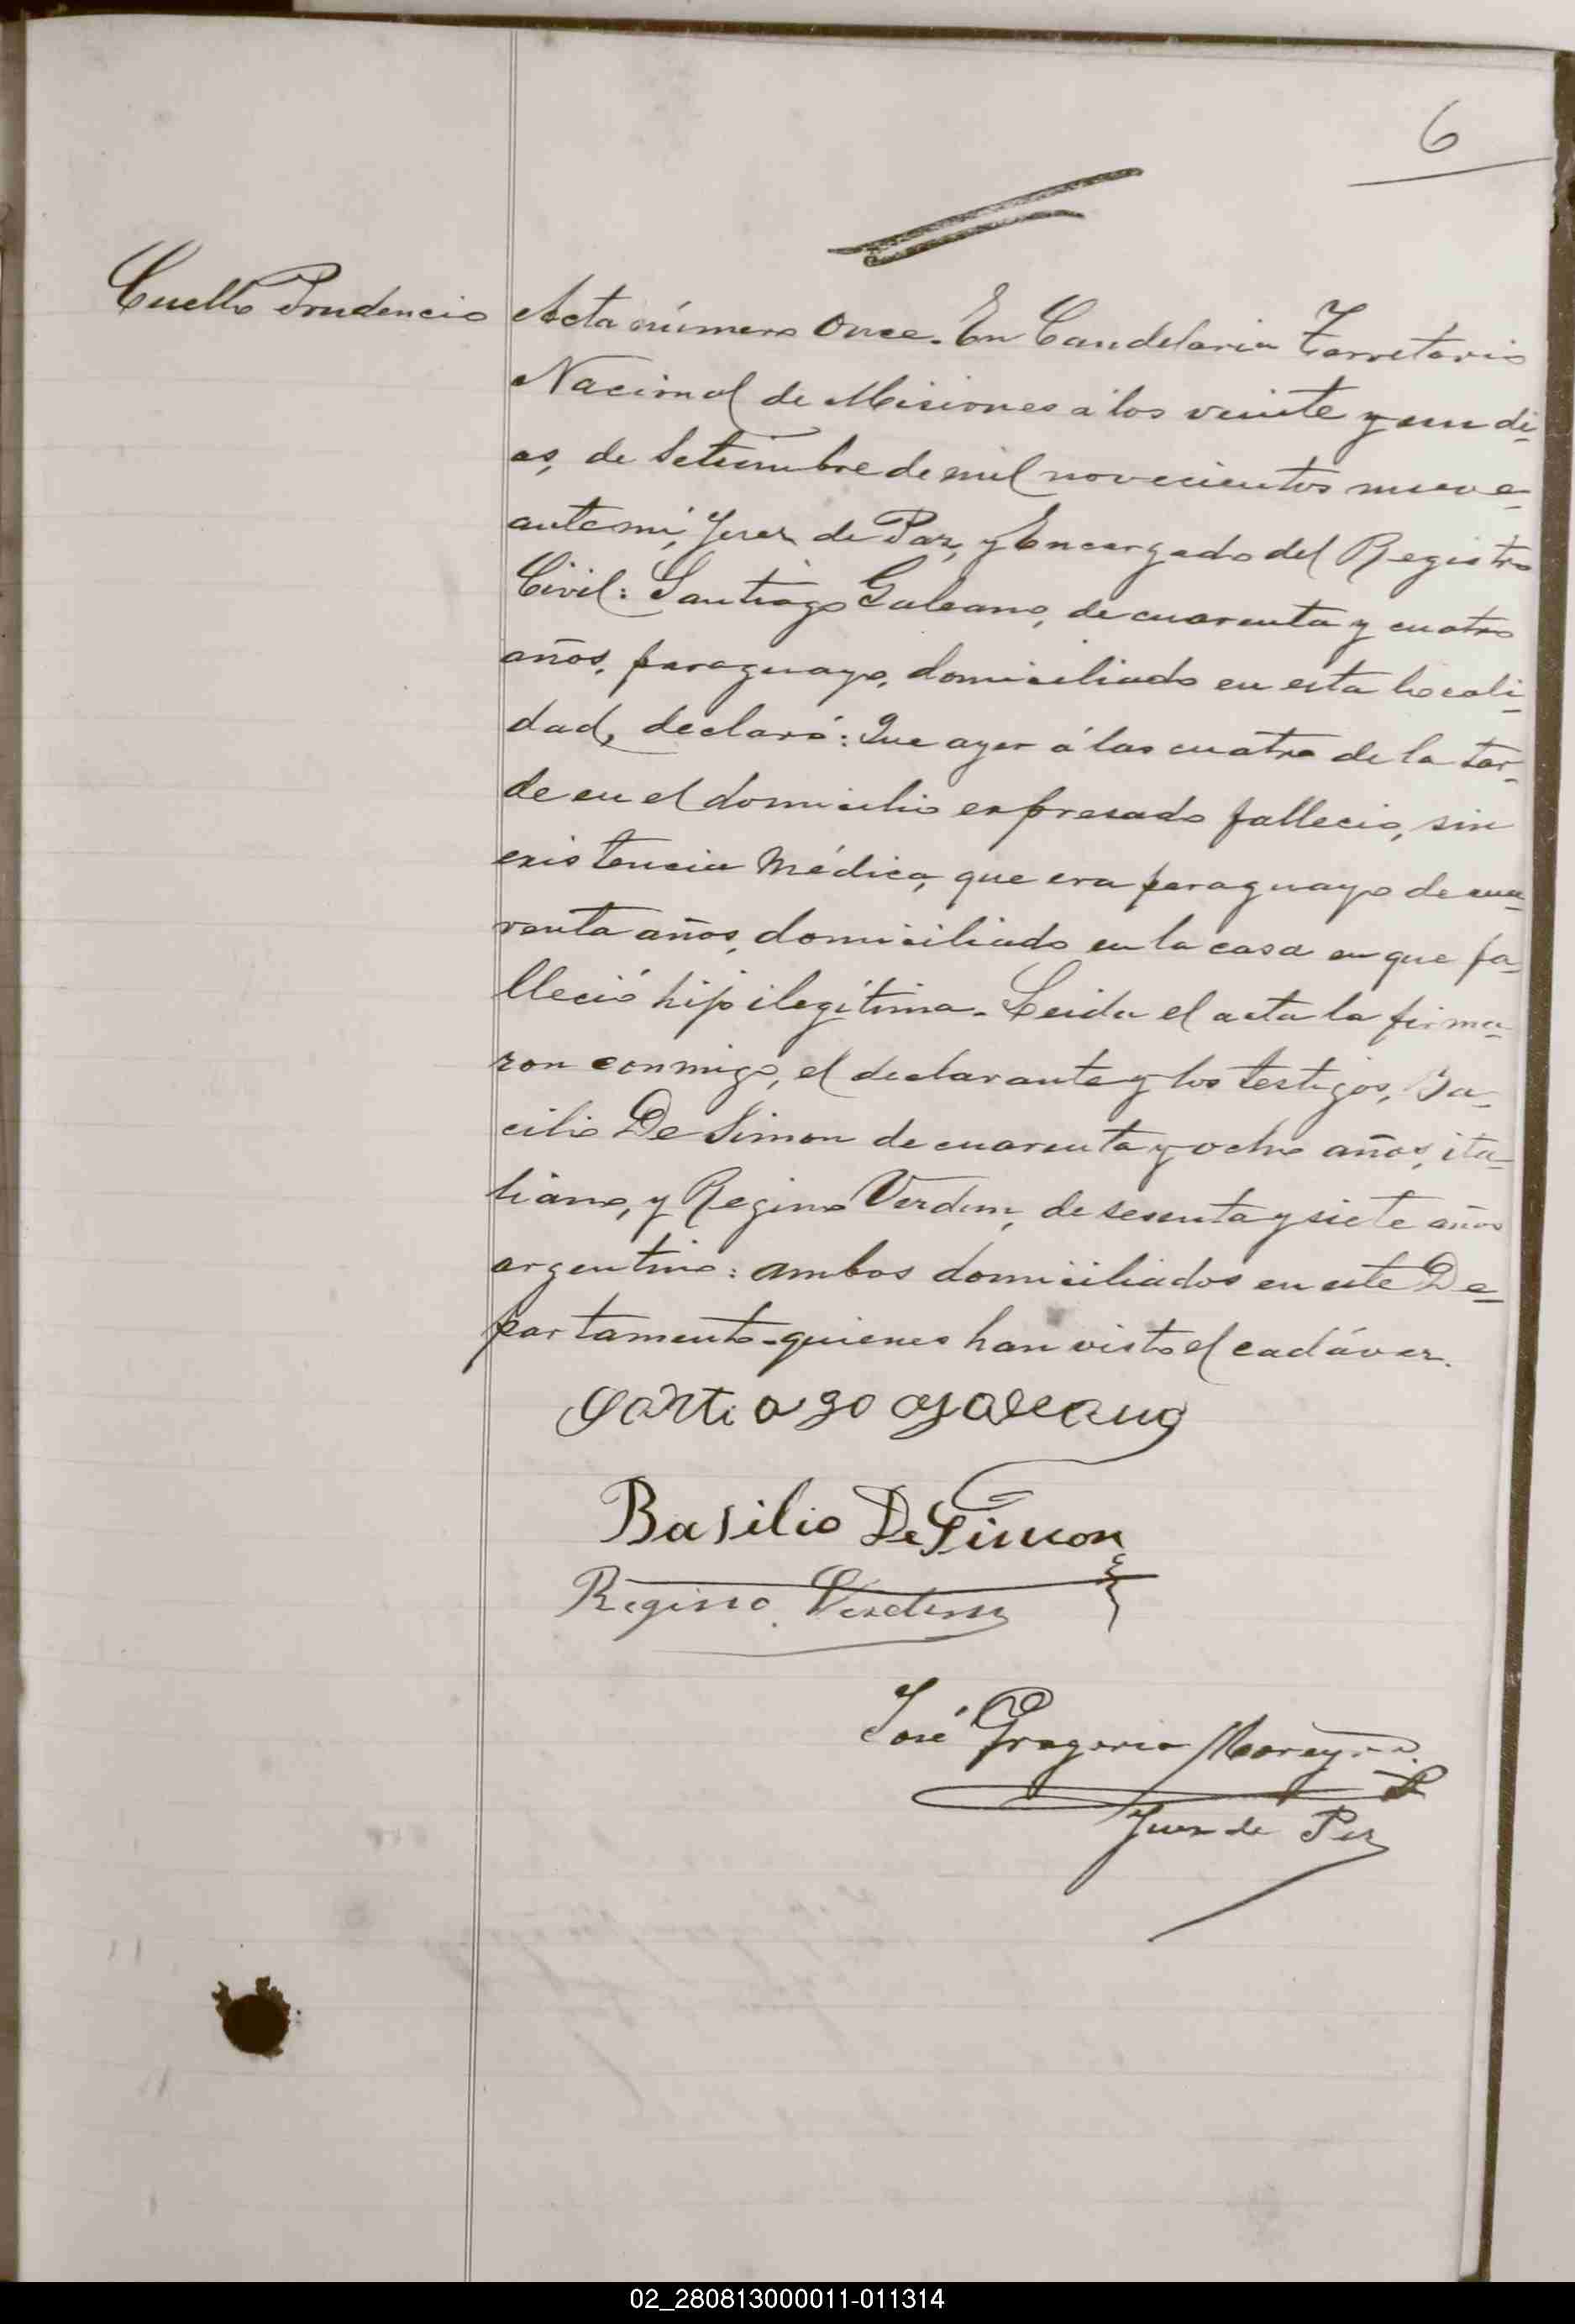 6
Cuello Prudencio
Acta número Once. En Candelaria Territorio
Nacional de Misiones á los veinte y un di-
as, de Setiembre de mil novecientos nueve-
ante mi, Juez de Paz, y Encargado del Registro
Civil: Santiago Galeano, de cuarenta y cuatro
años, paraguayo, domiciliado en esta locali-
dad, declaró: Que ayer á las cuatro de la tar-
de en el domicilio expresado fallecio, sin
existencia Médica, que era paraguayo de cua-
renta años, domiciliado en la casa en que fa-
lleció hijo ilegítimo. Leida el acta la firma-
ron conmigo, el declarante y los testigos, Ba-
cilio De Simon de cuarenta y ocho años, ita-
liano, y Regino Verdun, de sesenta y siete años
argentino: ambos domiciliados en este De-
partamento-quienes han visto el cadáver.
Santiago Galeano
Basilio De Simon
Regino Verdun
José Gregorio Moreyra
Juez de Paz
02_280813000011-011314